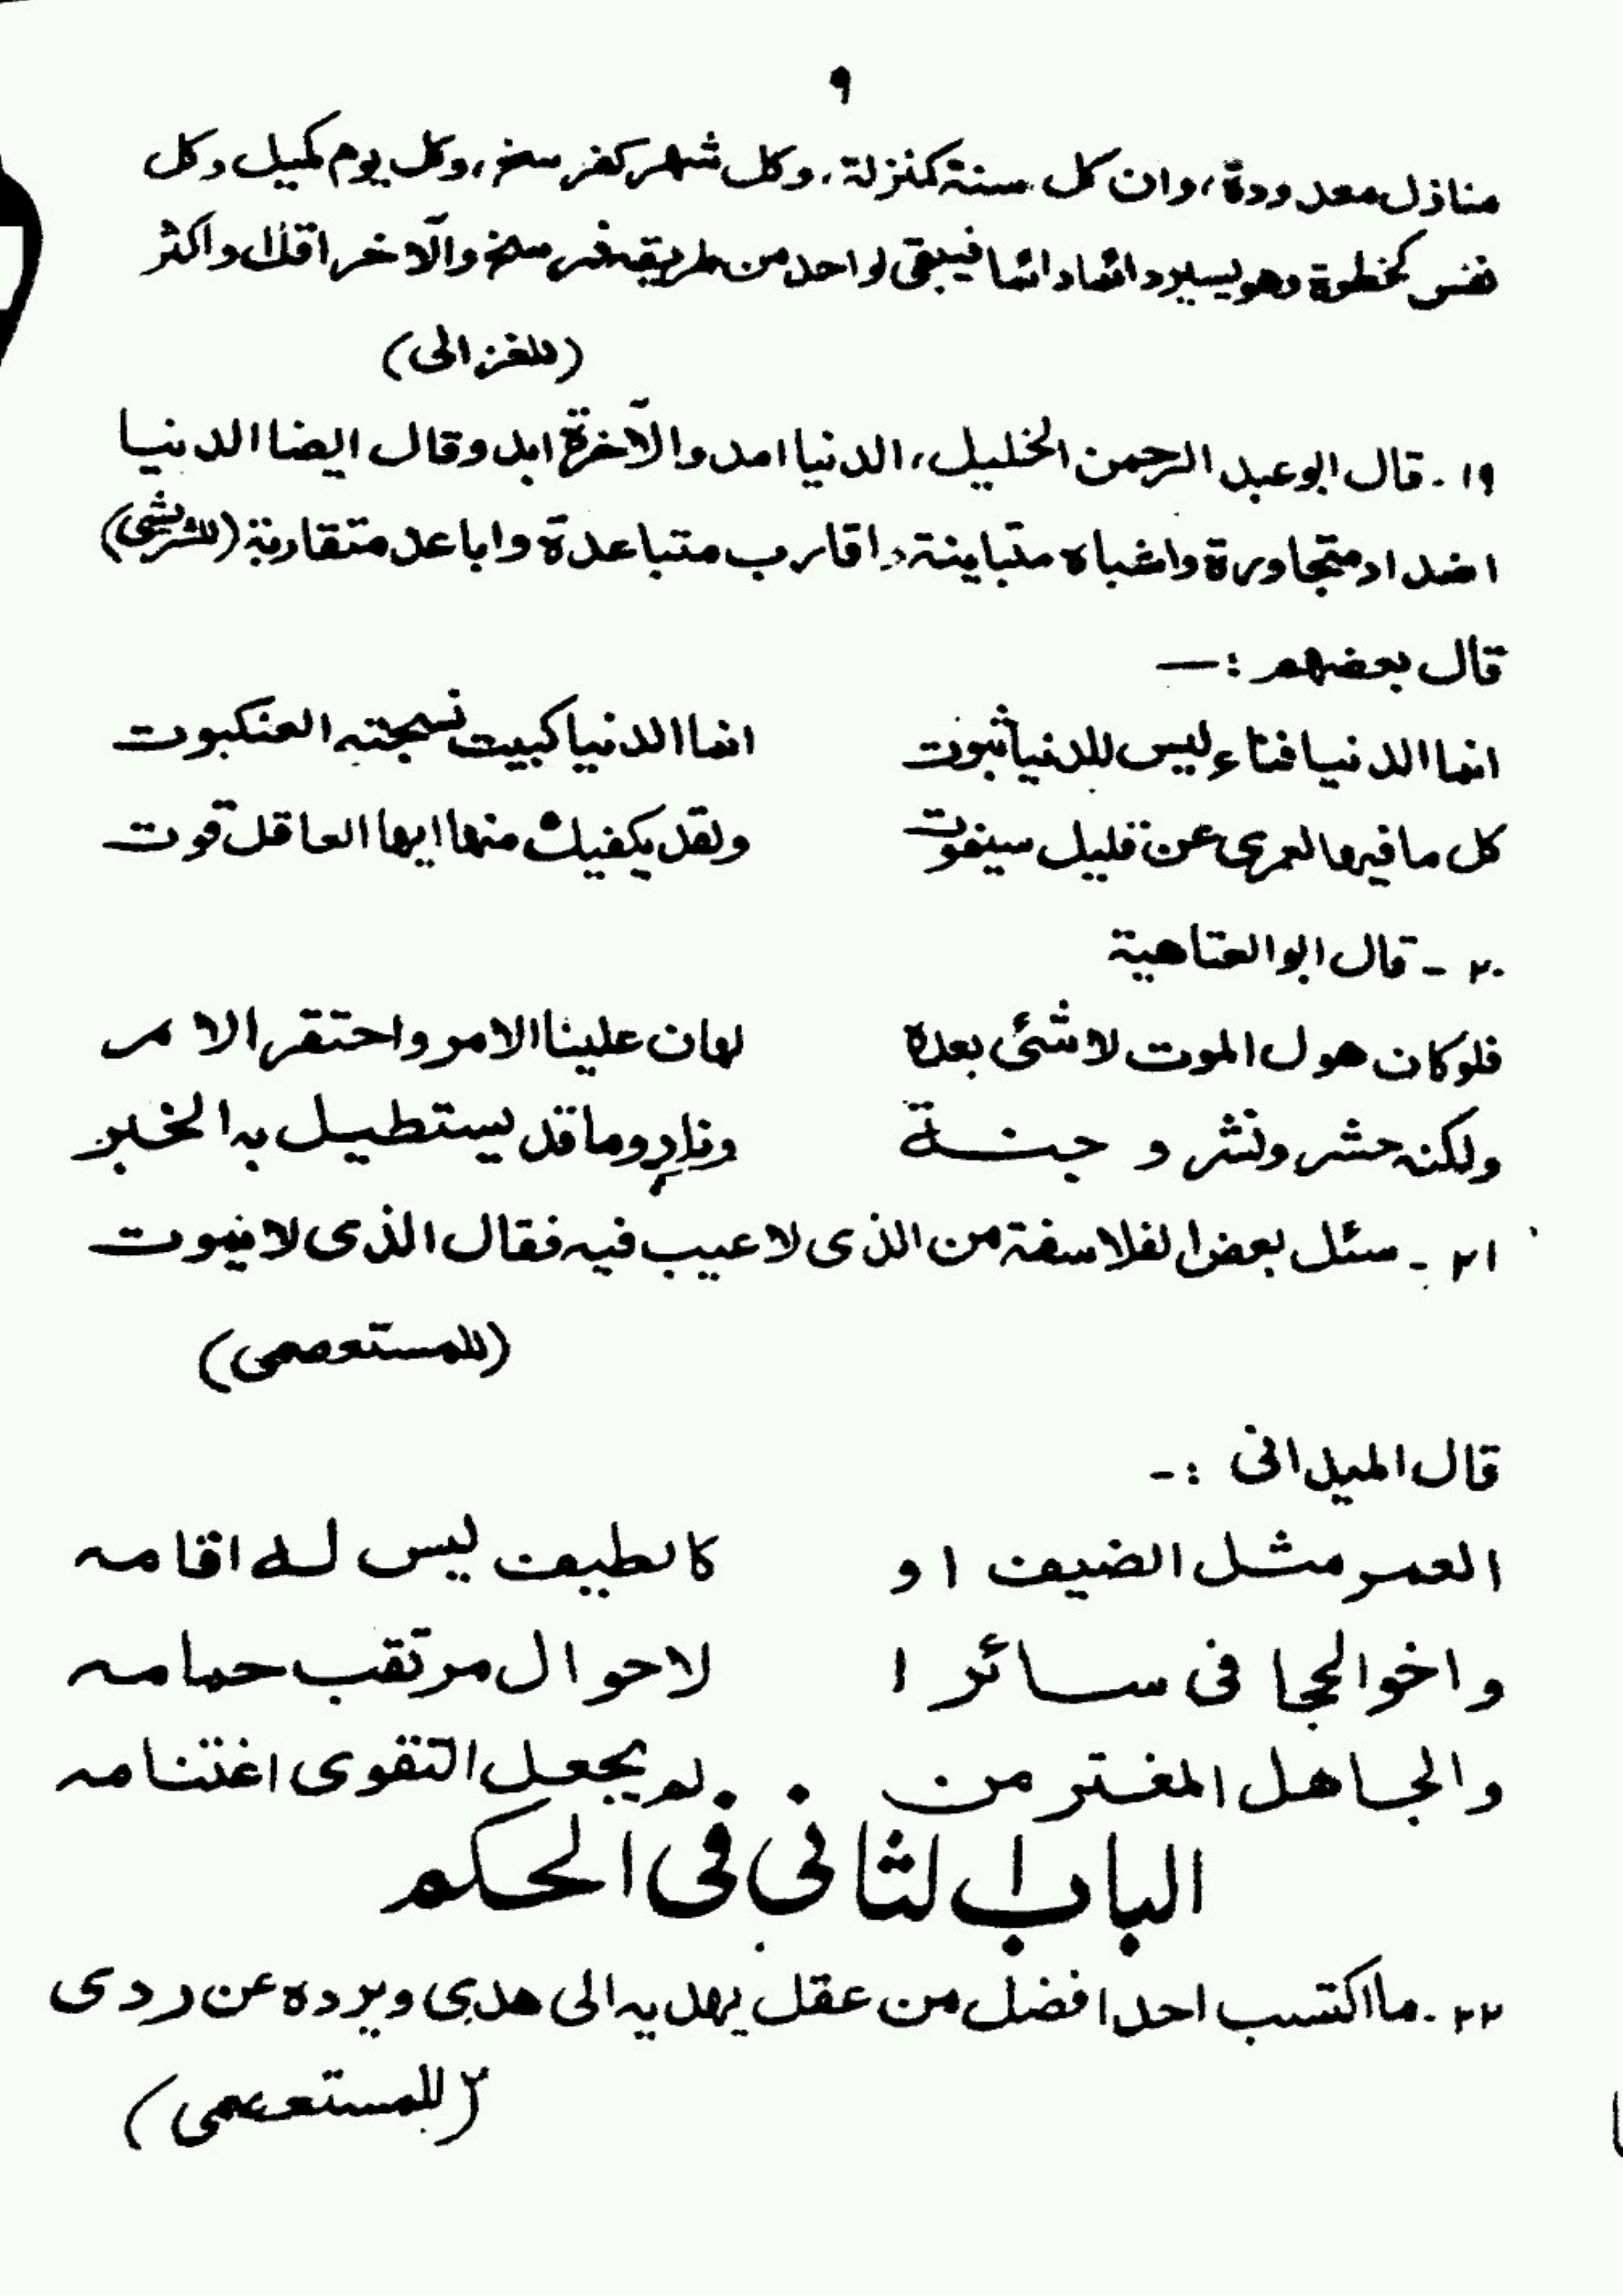 ٩
منازل معدودة، وان كل سنة كمنزلة، وكل شهر كفرسخ، وكل يوم كميل وكل
نفس كخطوة وهو يسير دائما دائما فيبقى لواحد من طريقه فرسخ والآخر اقل او اكثر
(للغزالى)
١٩- قال ابو عبد الرحمن الخليل، الدنيا امد والآخرة ابد وقال ايضا الدنيا
اضداد متجاورة واشباه متباينة واقارب متباعدة واباعد متقاربة (للشريشى)
قال بعضهم :—
انما الدنيا فناء ليس للدنيا ثبوت انما الدنيا كبيت نسجته العنكبوت
كل ما فيها لعمرى عن قليل سيفوت ولقد يكفيك منها ايها العاقل قوت
٢٠- قال ابو العتاهية
فلو كان هول الموت لا شئ بعده لهان علينا الامر واحتقر الامر
ولكنه حشر ونشر و جنة ونار وما قد يستطيل به الخبر
٢١- سئل بعض الفلاسفة من الذى لا عيب فيه فقال الذى لا يموت
(للمستعصمى)
قال الميدانى :-
العمر مثل الضيف او كالطيف ليس له اقامه
واخو الحجا فى سائر ا لاحوال مرتقب حمامه
والجاهل المغتر من لم يجعل التقوى اغتنامه
الباب الثانى فى الحكم
٢٢- ما اكتسب احد افضل من عقل يهديه الى هدى ويرده عن ردى
(للمستعصمى)